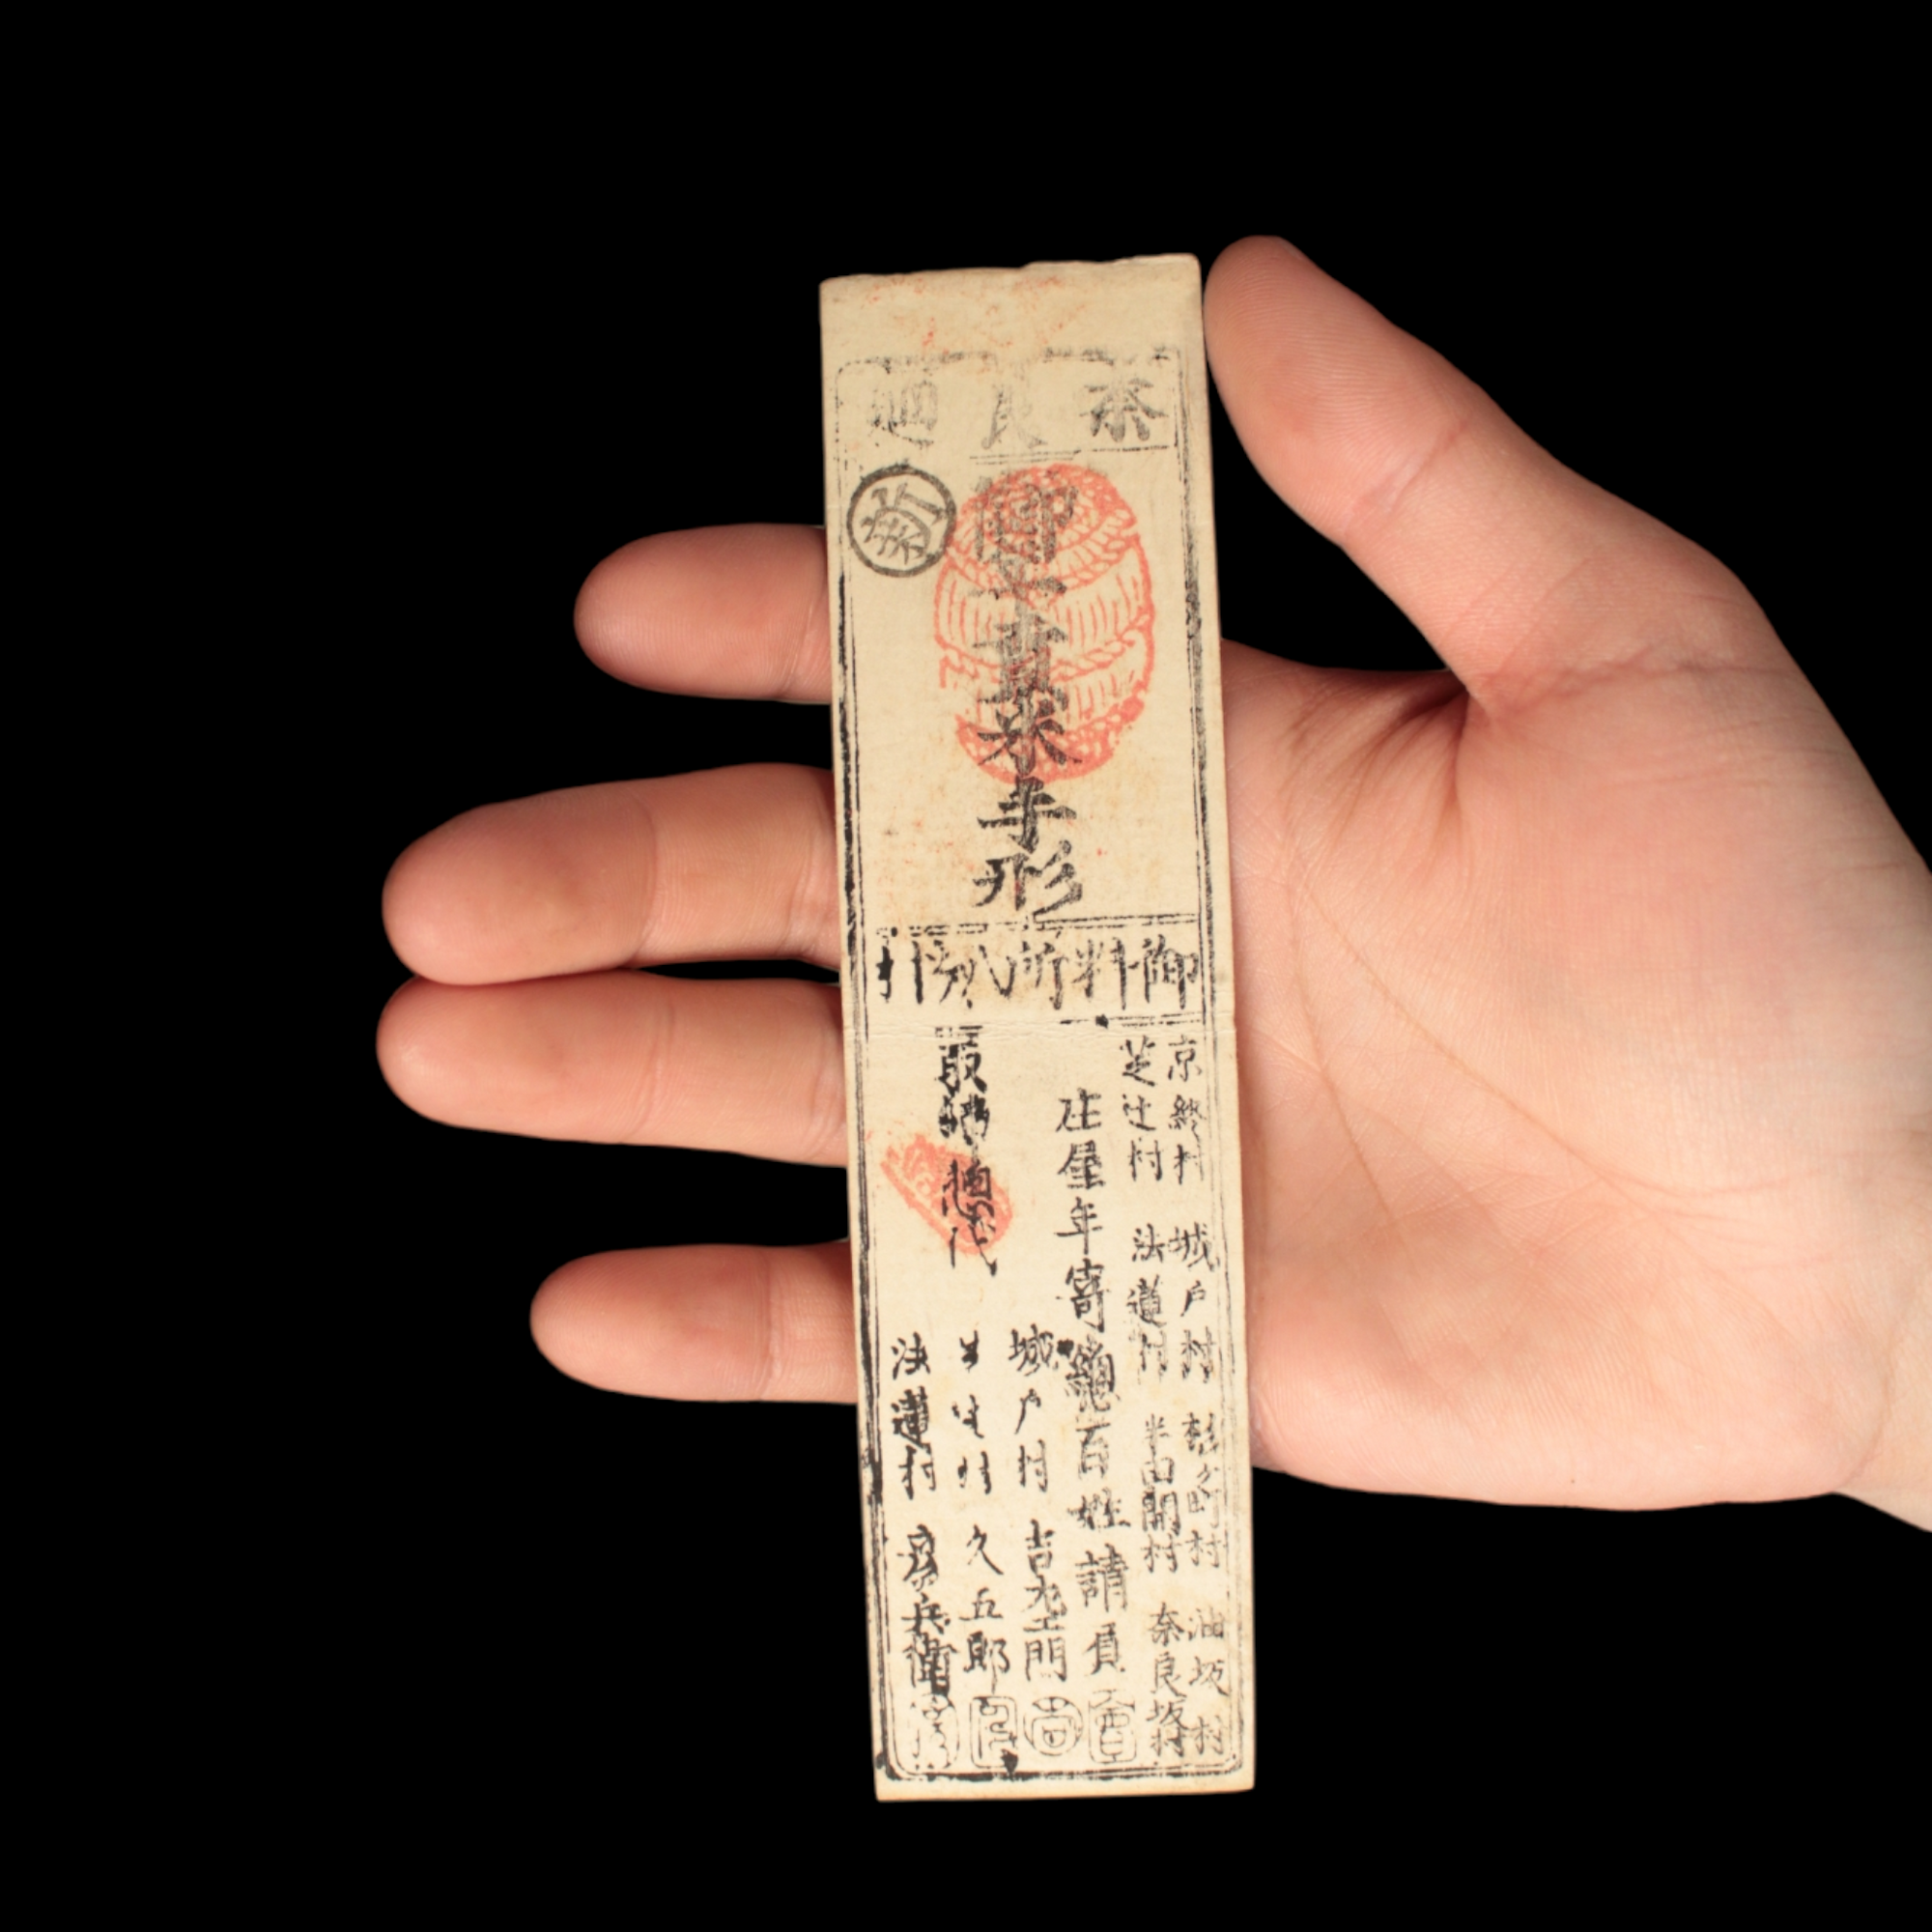 奈良廻
新
御上貢米手形
御料所八分引
京終村 城戸村 杉ヶ町村 油坂村
芝辻村 法蓮村 半田開村 奈良坂村
庄屋年寄惣百姓請負
取締惣代
城戸村 吉左エ門
久五郎
法蓮村 彦兵衛